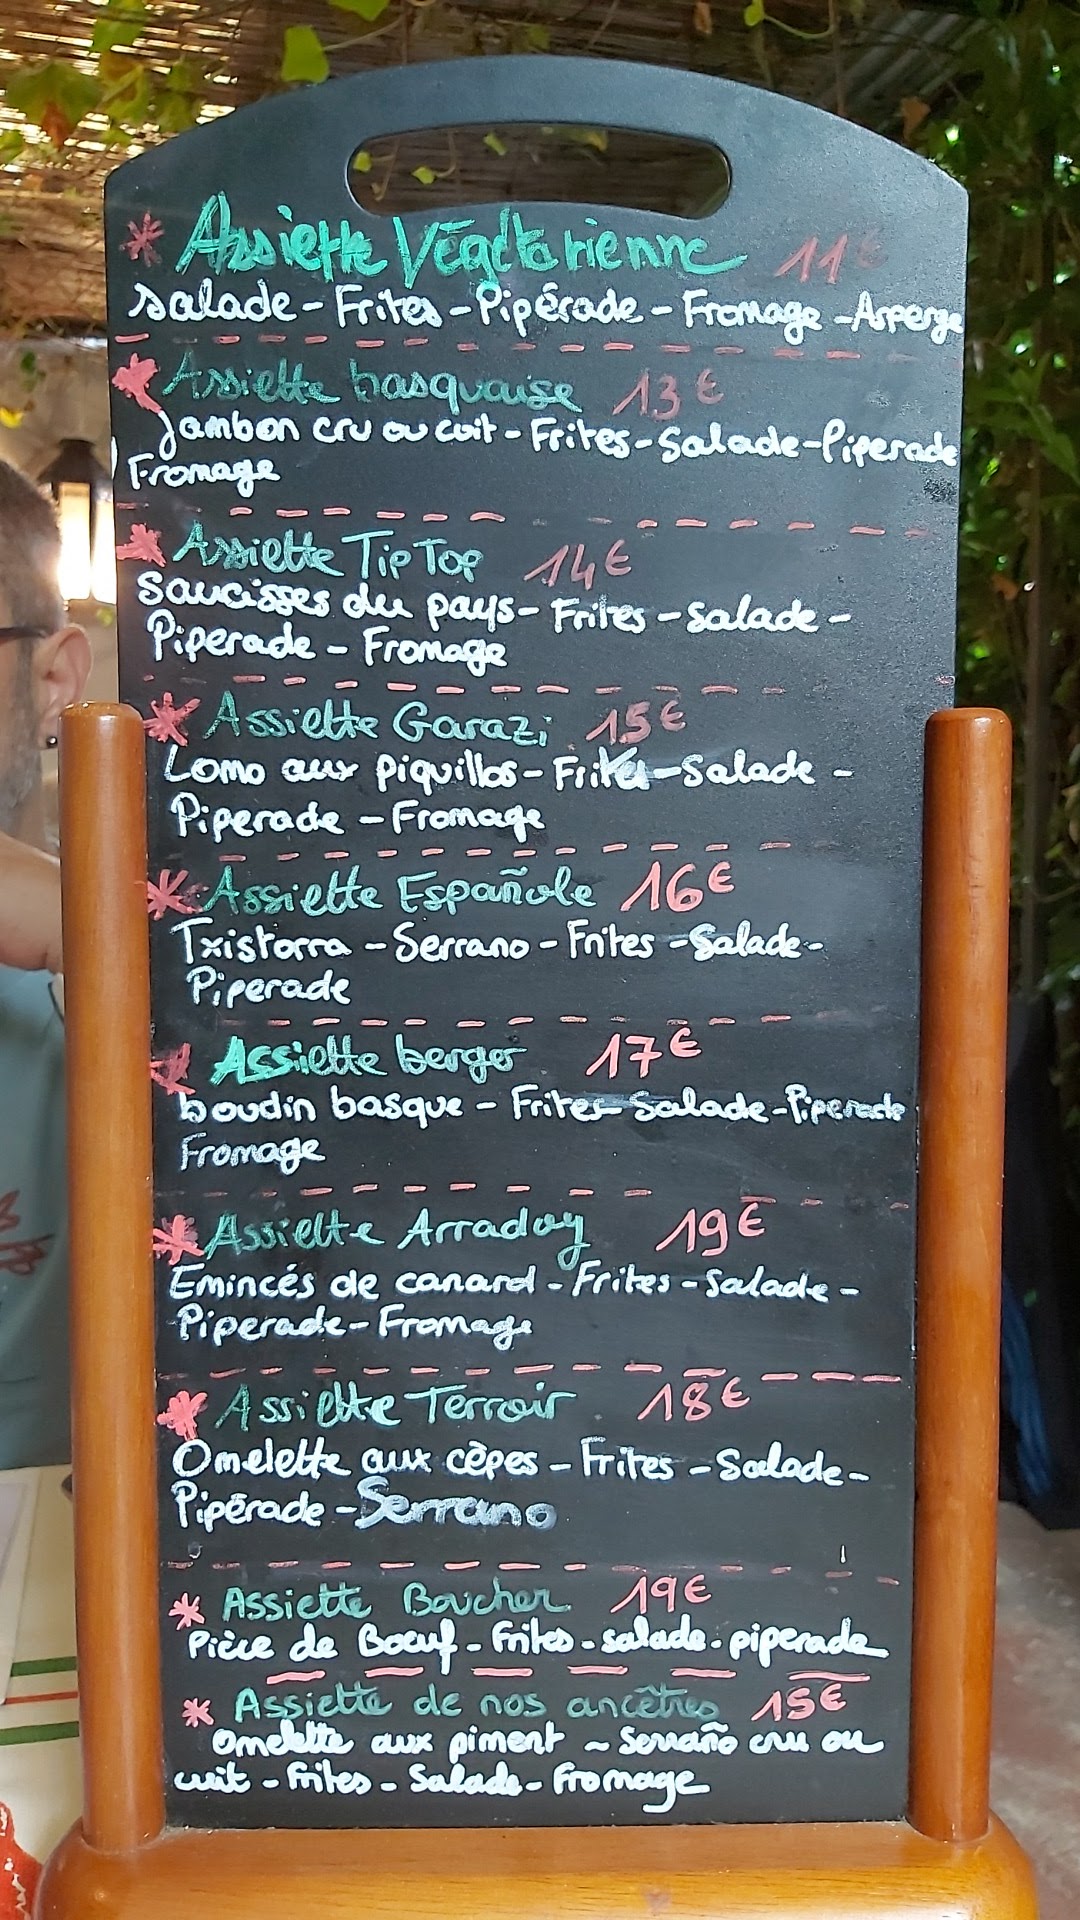 * Assiette Végétarienne 11€
salade - Frites - Pipérade - Fromage - Asperge
* Assiette basquaise 13€
Jambon cru ou cuit - Frites - Salade - Piperade
Fromage
* Assiette Tip Top 14€
saucisses du pays - Frites - salade -
Piperade - Fromage
* Assiette Garazi 15€
Lomo aux piquillos - Frites - Salade -
Piperade - Fromage
* Assiette Españole 16€
Txistorra - Serrano - Frites - Salade -
Piperade
* Assiette berger 17€
boudin basque - Frites - Salade - Piperade
Fromage
* Assiette Arradoy 19€
Emincés de canard - Frites - Salade -
Piperade - Fromage
* Assiette Terroir 18€
Omelette aux cèpes - Frites - Salade -
Pipérade - Serrano
* Assiette Boucher 19€
Pièce de Boeuf - Frites - salade - piperade
* Assiette de nos ancêtres 15€
Omelette aux piment ~ Serraño cru ou
cuit - Frites - Salade - Fromage